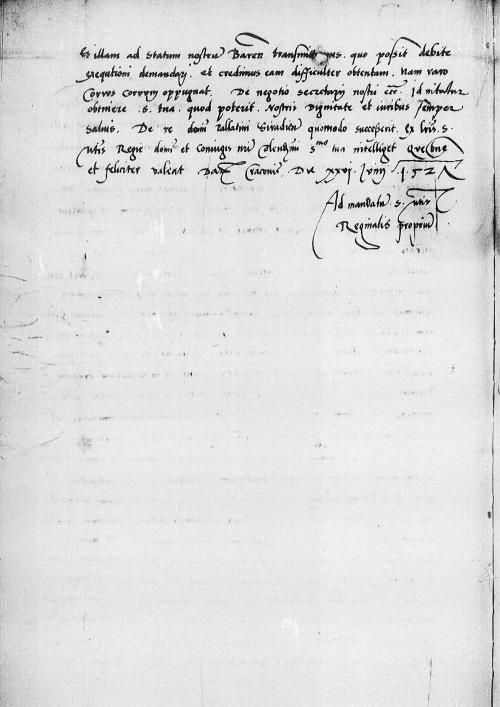 Et illam ad statum nostrū Baren̄ transmittimus. quo possit debite
exequtioni demandarj. et credimus eam difficulter obtentam. nam raro
Corvus corvum oppugnat. De negotio secretarij nostri etc. Id nitatur
obtinere .s. tua. quod poterit. nostris dignitate et iuribus semper
salvis. De re domī pallatini Siradien̄ quomodo successerit. ex lrīs .s.
Mtis Regie domī et Coniugis mei s mo tua intelliget que bn̄e
et feliciter valeat Dat Cracovie Die xxvj Junij 152
Ad mandatū s. Mtis
Reginalis propriū